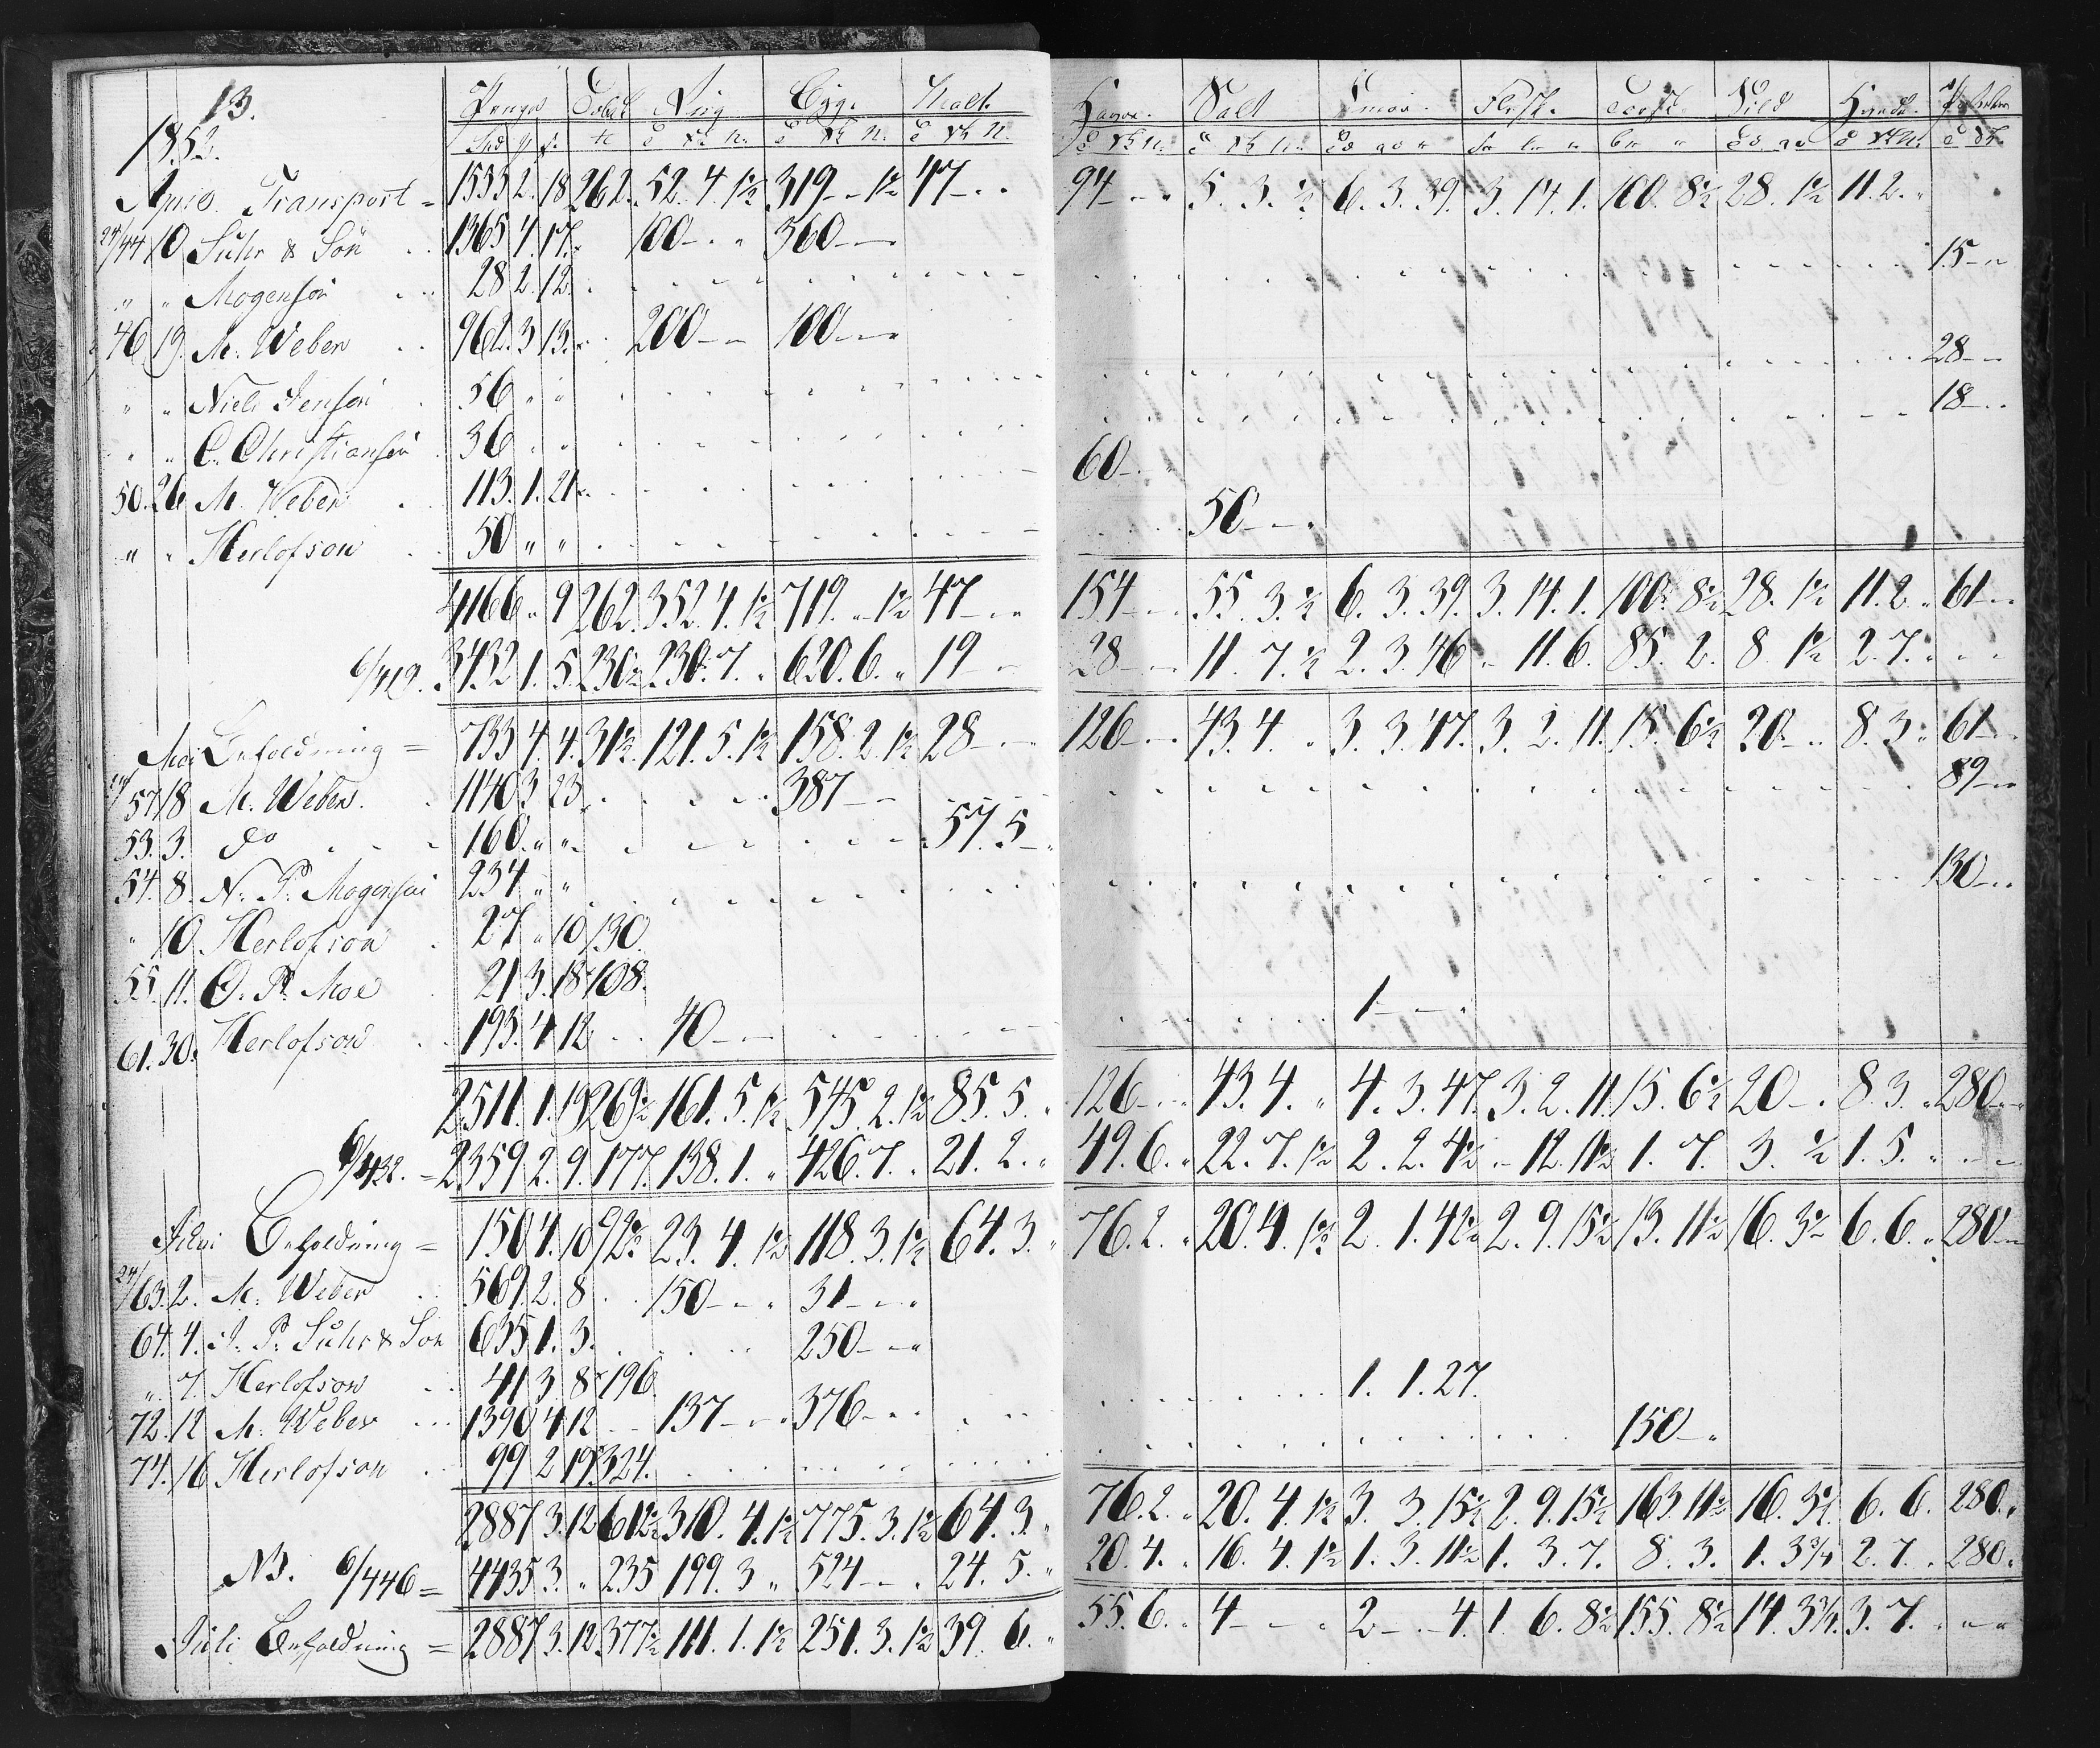 13.
1852.
Penge Tobak Rug Byg. Malt. Havre. Salt Smør. Flesk. Tørfisk. Sild
April Transport = 1533 2. 18 262. 52. 4. 1½ 319 - 1½ 47 - . . 94 - . . 5. 3. ½ 6. 3. 39. 3. 14. 1. 100. 8½ 28. 1½ 11. 2. "
24/44 10. Suhr & Søn . . 1365 4. 17. 100 - . " 360 - -
" " Mogensen . . 28 2. 12. 15 - "
46 19. M. Weber . . 962. 3 13. 200 - - 100 - - 28 - -
" " Niels Jensen . 56 " " 18 - . .
" " C. Christiansen . 36 " " 60 - . "
50. 26 M. Weber . 113. 1. 21
" " Herlofson . . 50 " " 50 - - .
4166 " 9 262. 352. 4. 1½ 719. - 1½ 47 - . " 154 - - 55. 3. ½ 6. 3. 39. 3. 14. 1. 100. 8½ 28. 1½ 11. 2. " 61 - -
6/419. 3432 1. 5. 230½ 230. 7. " 620. 6. " 19 - - 28 - - 11. 7. ½ 2. 3. 46 - 11. 6. 85. 2. 8. 1½ 2. 7. "
Mai Beholdning = 733 4. 4. 31½ 121. 5. 1½ 158. 2. 1½ 28 - - 126 - - 43. 4. " 3. 3. 47. 3. 2. 11. 15. 6½ 20 - . . 8. 3. " 61 - -
24/57 18 M. Weber. . 1140 3 23 387 - - 89 - -
53. 3. do . . . 160. " " 57. 5 -
54. 8. N. P. Mogensen 234 " " 130 - . .
" 10. Herlofson . 27 " 10 130.
55. 11. O. P. Moe 21 3. 18 108.
61. 30. Herlofson . . 193. 4 12 . . 40 - - 1 - - .
2511. 1. 19 269½ 161. 5. 1½ 545. 2. 1½ 85. 5. " 126 - - 43. 4. " 4. 3. 47. 3. 2. 11. 15. 6½ 20 - . 8. 3. " 280 - -
6/432. = 2359 2. 9. 177. 138. 1. " 426. 7. " 21. 2. " 49. 6. " 22. 7. 1½ 2. 2. 4½ - 12. 11½ 1. 7. 3. ½ 1. 5. "
Beholdning = 150 4. 10 92½ 23. 4. 1½ 118. 3. 1½ 64. 3. " 76. 2. " 20. 4. 1½ 2. 1. 42½ 2. 9. 15½ 13. 11½ 16. 3½ 6. 6. " 280 - -
24/63. 2. M. Weber . . 569. 2. 8 . . 150 - - " 31 - - "
64. 4. J. P. Suhr & Søn 635 1. 3. 250 - - "
" 7. Herlofson . . 41 3. 8 196. 1. 1. 27.
72. 12 M. Weber . . . 1390 4 12 . . 137 - - 376 - . . 150 - .
74. 16 Herlofson . . 99 2 19 324.
2887 3. 12 612½ 310. 4. 1½ 775. 3. 1½ 64. 3. " 76. 2. " 20. 4. 1½ 3. 3. 15½ 2. 9. 15½ 163. 11½ 16. 3½ 6. 6. 280. "
NB. 6/446 = 4435 3. " 235 199. 3 " 524 - - . 24. 5. " 20. 4. " 16. 4. 1½ 1. 3. 11½ 1. 3. 7. 8. 3. 1. 3¾ 2. 7. " 280. "
Juli Beholdning = 2887 3. 12 377½ 111. 1. 1½ 251. 3. 1½ 39. 6. " 55. 6. " 4 - - " 2 - . - 4. 1. 6. 8½ 155. 8½ 14. 3¾. 3. 7. " - -